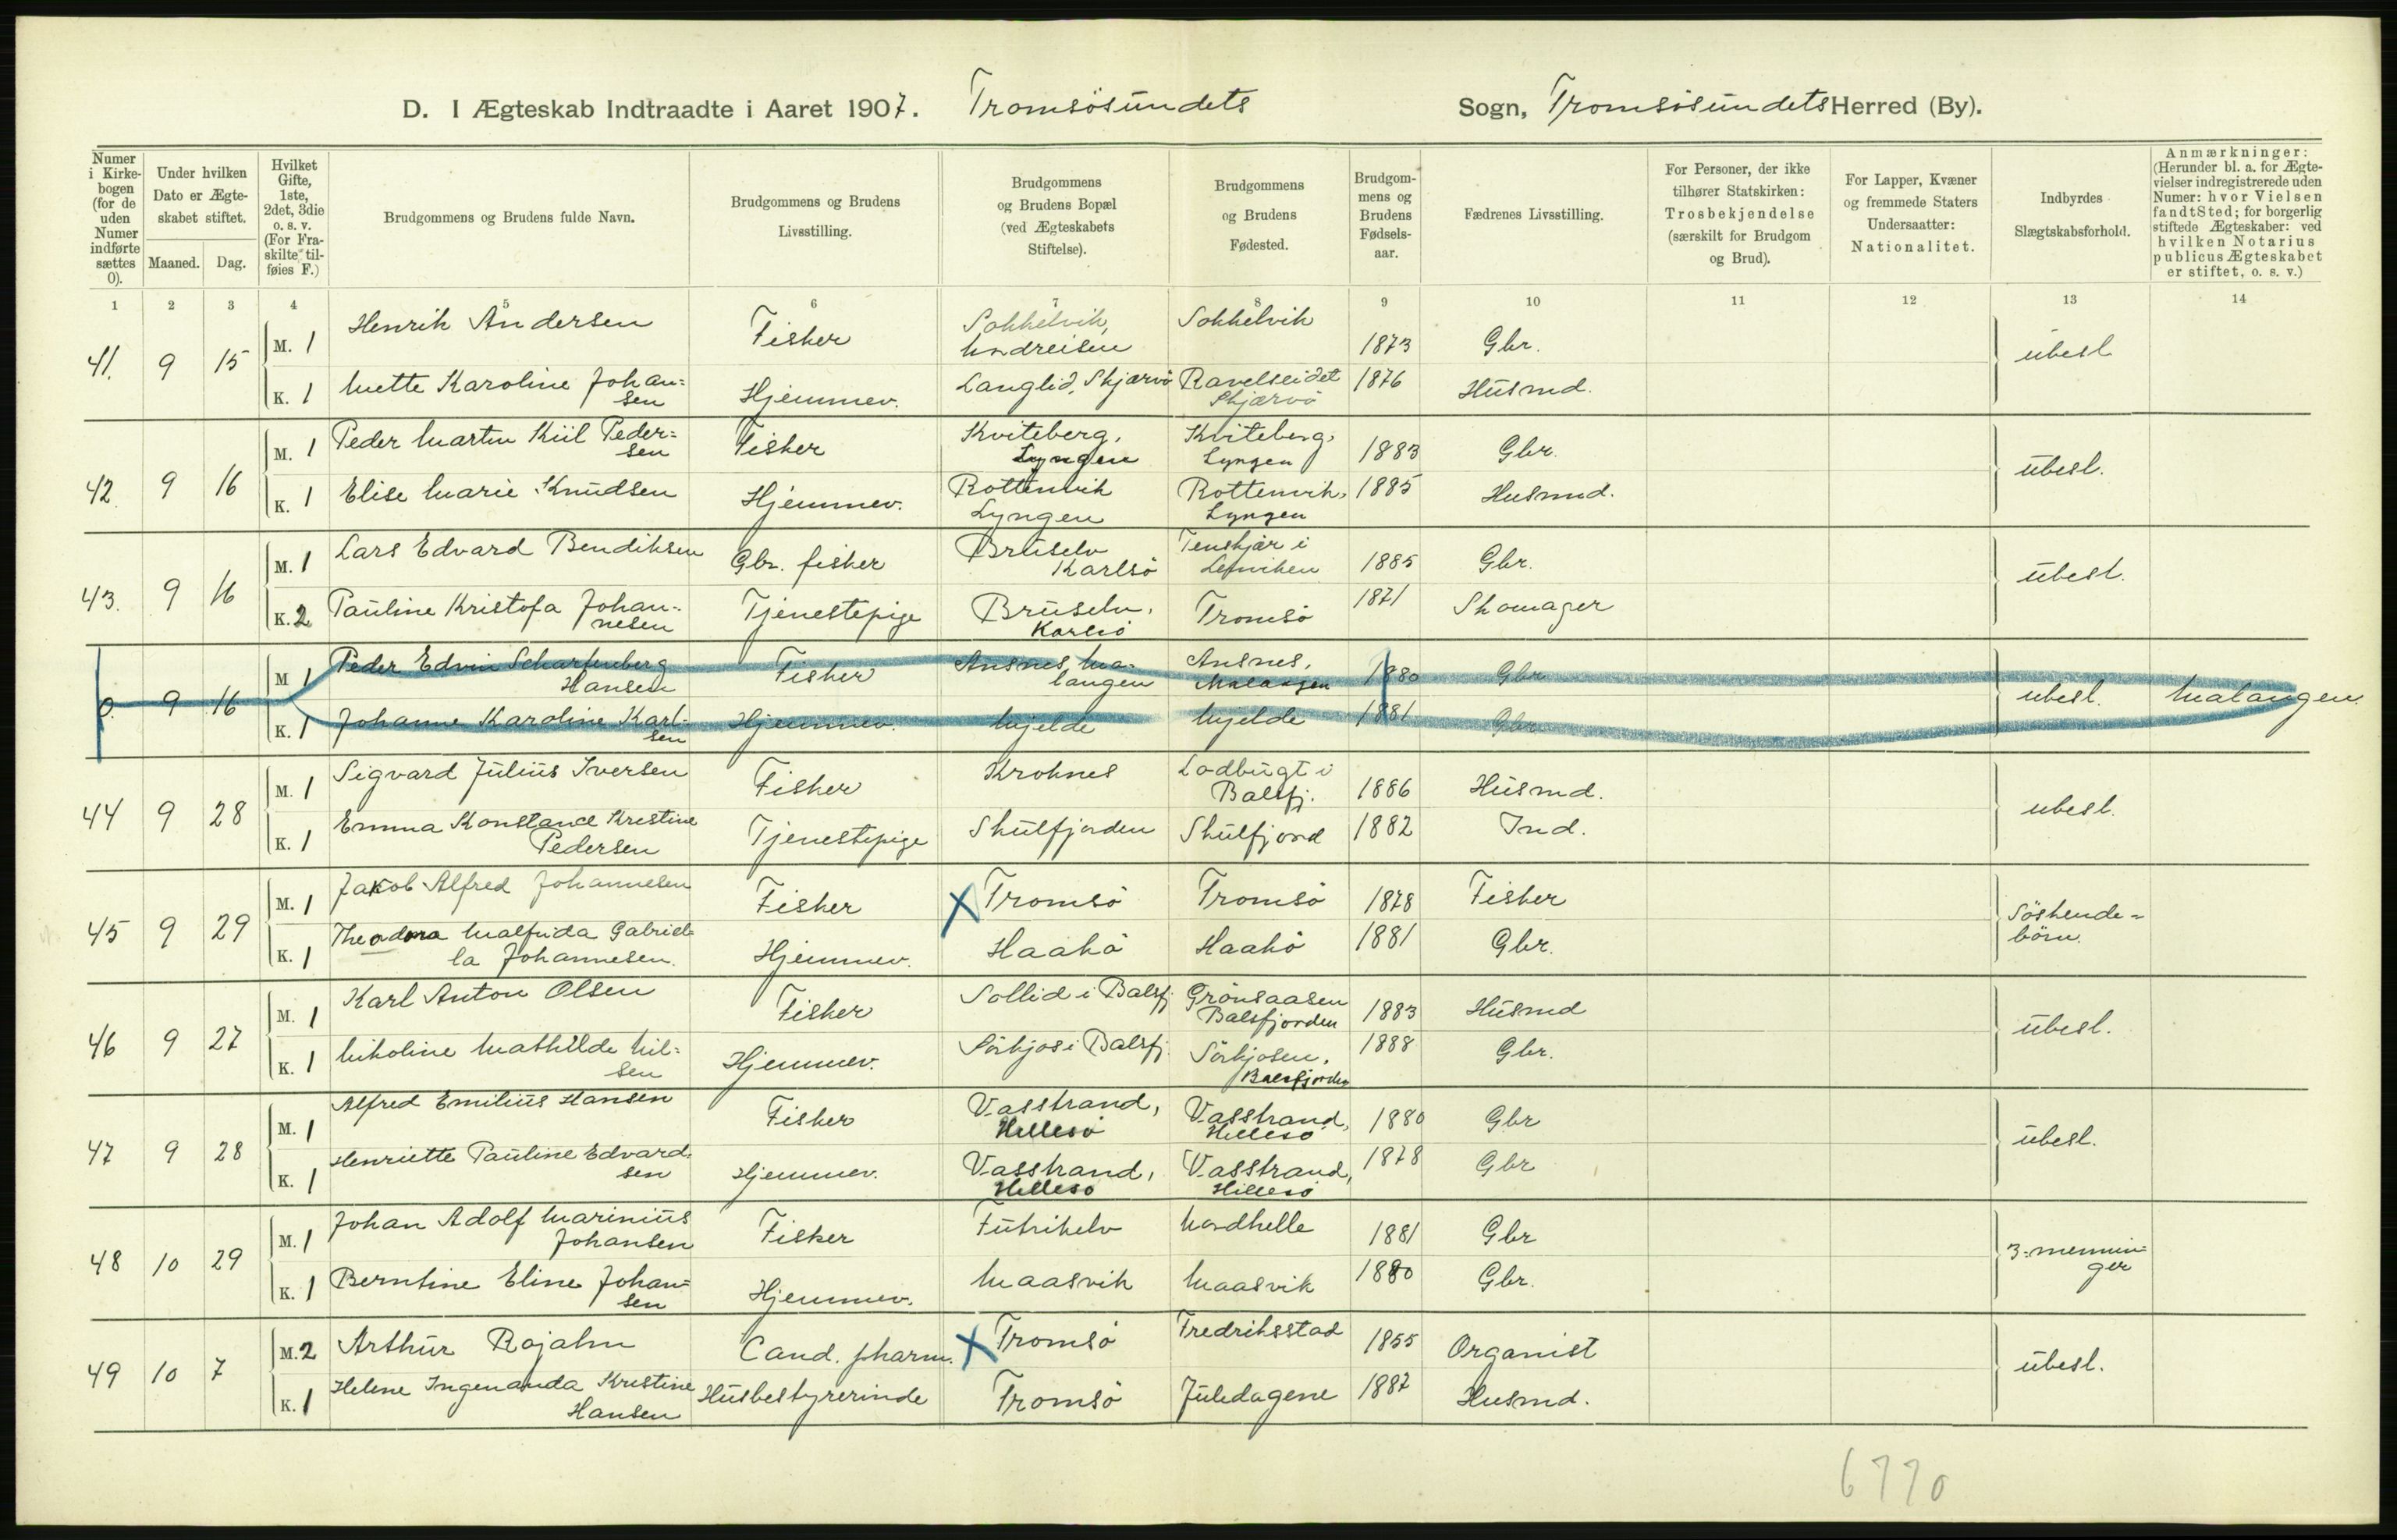 D. I Ægteskab Indtraadte i Aaret 1907. Tromsösundets Sogn, Tromsösundets Herred (By).
Numer i Kirkebogen (for de uden Numer indførte sættes 0).
Under hvilken Dato er Ægteskabet stiftet.
Maaned. Dag.
Hvilket Gifte, 1ste, 2det, 3die o. s. v. (For Fraskilte tilføies F.)
Brudgommens og Brudens fulde Navn.
Brudgommens og Brudens Livsstilling.
Brudgommens og Brudens Bopæl (ved Ægteskabets Stiftelse).
Brudgommens og Brudens Fødested.
Brudgommens og Brudens Fødselsaar.
Fædrenes Livsstilling.
For Personer, der ikke tilhører Statskirken: Trosbekjendelse (særskilt for Brudgom og Brud).
For Lapper, Kvæner og fremmede Staters Undersaatter: Nationalitet.
Indbyrdes Slægtskabsforhold.
Anmærkninger: (Herunder bl. a. for Ægtevielser indregistrerede uden Numer: hvor Vielsen fandt Sted; for borgerlig stiftede Ægteskaber: ved hvilken Notarius publicus Ægteskabet er stiftet, o. s. v.)
1 2 3 4 5 6 7 8 9 10 11 12 13 14
41. 9 15 M. 1 Henrik Andersen Fisker Sokkelvik, Nordreisen Sokkelvik 1873 Gbr. ubesl.
K. 1 Mette Karoline Johansen Hjemmev. Langlid, Skjærvö Ravelseidet Skjærvö 1876 Husmd.
42. 9 16 M. 1 Peder Martin Kiil Pedersen Fisker Kviteberg, Lyngen Kviteberg, Lyngen 1883 Gbr. ubesl.
K. 1 Elise Marie Knudsen Hjemmev. Rottenvik Lyngen Rottenvik, Lyngen 1885 Husmd.
43. 9 16 M. 1 Lars Edvard Bendiksen Gbr. fisker Bruselv Karlsö Tenskjær i Lenviken 1885 Gbr. ubesl.
K. 2 Pauline Kristofa Johannesen Tjenestepige Bruselv, Karlsö Tromsö 1871 Skomager
0. 9 16 M 1 Peder Edvin Scharfenberg Hansen Fisker Ansnes, Malangen Ansnes, Malangen 1880 Gbr ubesl. Malangen.
K. 1 Johanne Karoline Karlsen Hjemmev. Mjelde Mjelde 1881 Gbr
44 9 28 M. 1 Sigvard Julius Iversen Fisker Kroknes Lodbugt i Balsfj. 1886 Husmd. ubesl.
K. 1 Emma Konstance Kristine Pedersen Tjenestepige Skulfjorden Skulfjord 1882 Ind.
45 9 29 M. 1 Jakob Alfred Johannesen Fisker X Tromsö Tromsö 1878 Fisker Söskendebörn.
K. 1 Theodora Malfrida Gabriella Johannesen. Hjemmev. Haakö Haakö 1881 Gbr.
46 9 27 M. 1 Karl Anton Olsen Fisker Sollid i Balsfj Grönsaasen Balsfjorden 1883 Husmd ubesl.
K. 1 Nikoline Mathilde Nilsen Hjemmev. Sörkjos i Balsfj. Sörkjosen, Balsfjorden 1888 Gbr.
47 9 28 M. 1 Alfred Emilius Hansen Fisker Vasstrand, Hillesö Vasstrand, Hillesö 1880 Gbr ubesl.
K. 1 Henriette Pauline Edvardsen Hjemmev. Vasstrand, Hillesö Vasstrand, Hillesö 1878 Gbr
48 10 29 M. 1 Johan Adolf Marinius Johansen Fisker Futrikelv Nordhelle 1881 Gbr 3-menninger
K. 1 Berntine Eline Johansen Hjemmev. Maasvik Maasvik 1880 Gbr.
49 10 7 M. 2 Arthur Rojahn Cand. pharm. X Tromsö Fredriksstad 1855 Organist ubesl.
K. 1 Helene Ingenanda Kristine Hansen Husbestyrerinde Tromsö Juledagene 1887 Husmd.
6770